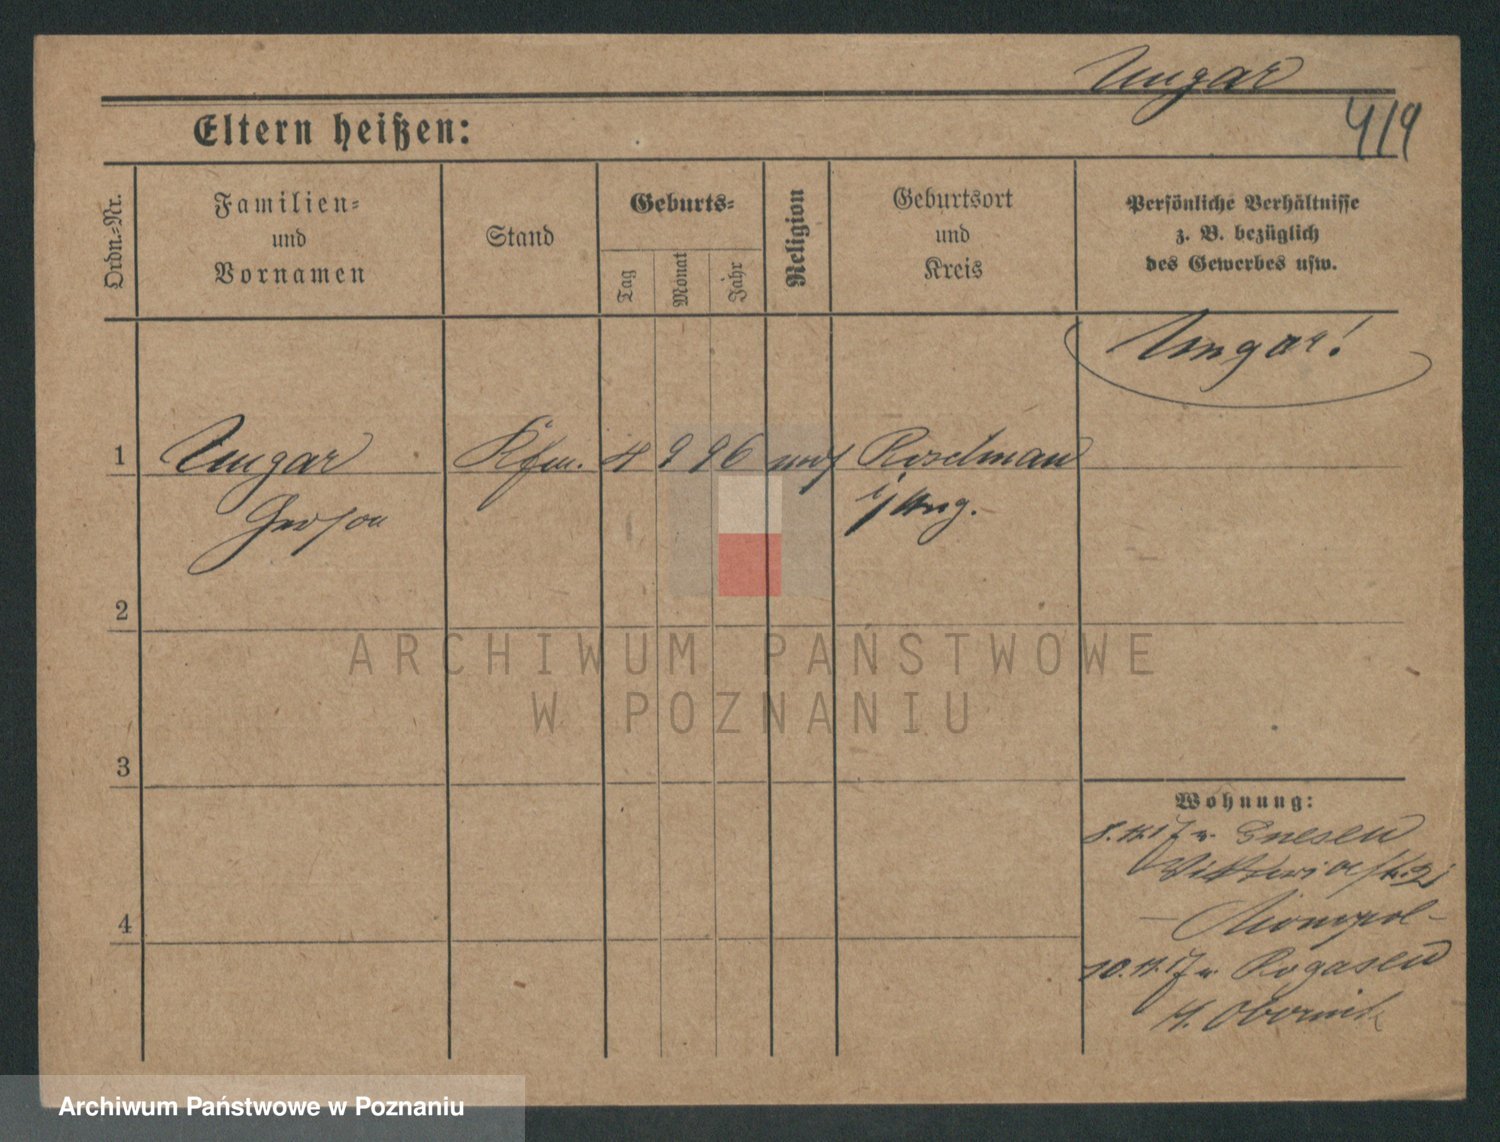 Ungar
4/9
Eltern heißen:
Ordn.-Nr.
Familien-
und
Vornamen
Stand
Geburts-
Tag
Monat
Jahr
Religion
Geburtsort
und
Kreis
Persönliche Verhältnisse
z. B. bezüglich
des Gewerbes usw.
Ungar!
1
Ungar
Kfm. 4 9 96 mos
Gerson
i/Ung.
2
ARCHIWUM PAŃSTWOWE
W POZNANIU
3
Wohnung:
8.11.17 v. Gnesen
Viktoriastr. 21
4
Monopol-
10.11.17 n. Rogasen
K. Obornik
Archiwum Państwowe w Poznaniu